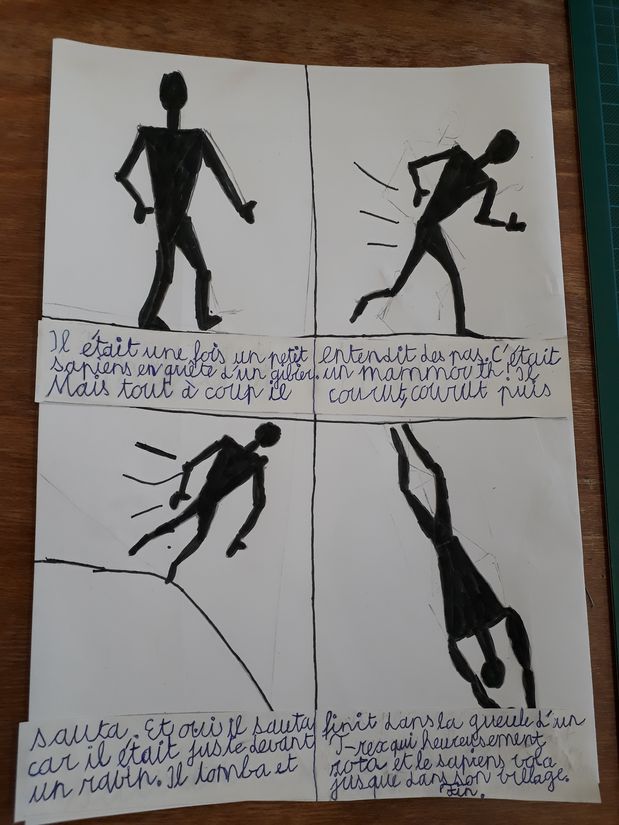 Il était une fois un petit
sapiens en quête d'un gibier.
Mais tout à coup il
entendit des pas. C'était
un mammouth ! Il
courut, courut puis
sauta. Et oui il sauta
car il était juste devant
un ravin. Il tomba et
finit dans la gueule d'un
T-rex qui heureusement
rota et le sapiens vola
jusque dans son village.
Fin.